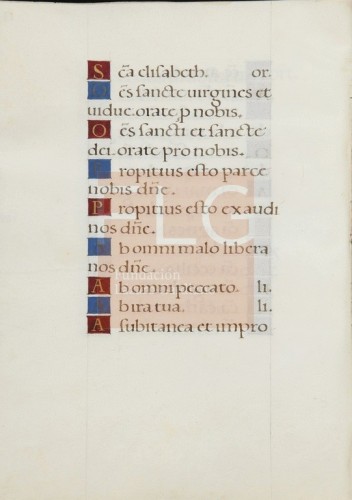 Sc̃a elisabeth. or.
Oẽs sancte uirgines et
uidue. orate p nobis.
Oẽs sancti et sancte
dei. orate pro nobis.
Propitius esto parce
nobis dñe.
Propitius esto exaudi
nos dñe.
Ab omni malo libera
nos dñe.
Ab omni peccato. li.
Ab ira tua. li.
A subitanea et impro
FLG
Fundación